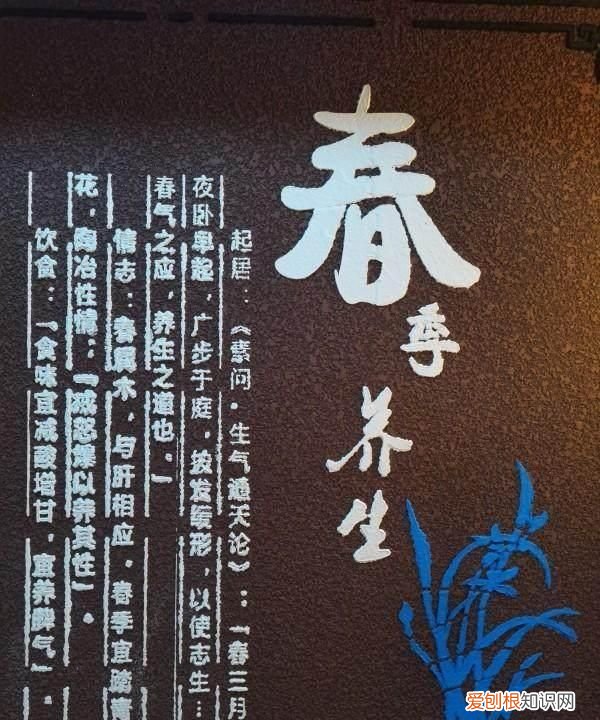 春
季
养
生
起居：《素问·生气通天论》：「春三月
夜卧早起，广步于庭，披发缓形，以使志生…
春气之应，养生之道也。」
情志：春属木，与肝相应。春季宜踏青
花，陶冶性情；「戒怒燥以养其性」。
饮食：「食味宜减酸增甘，宜养脾气」。
爱刨根知识网